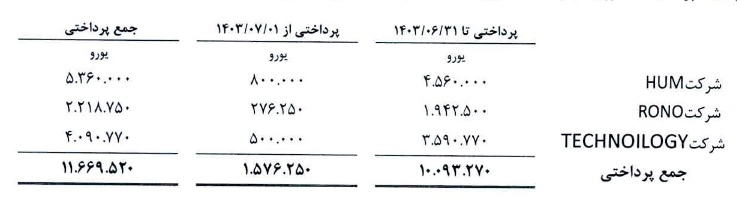 پرداختی تا ۱۴۰۳/۰۶/۳۱ پرداختی از ۱۴۰۳/۰۷/۰۱ جمع پرداختی
یورو یورو یورو
شرکت HUM ۴.۵۶۰.۰۰۰ ۸۰۰.۰۰۰ ۵.۳۶۰.۰۰۰
شرکت RONO ۱.۹۴۲.۵۰۰ ۲۷۶.۲۵۰ ۲.۲۱۸.۷۵۰
شرکت TECHNOILOGY ۳.۵۹۰.۷۷۰ ۵۰۰.۰۰۰ ۴.۰۹۰.۷۷۰
جمع پرداختی ۱۰.۰۹۳.۲۷۰ ۱.۵۷۶.۲۵۰ ۱۱.۶۶۹.۵۲۰